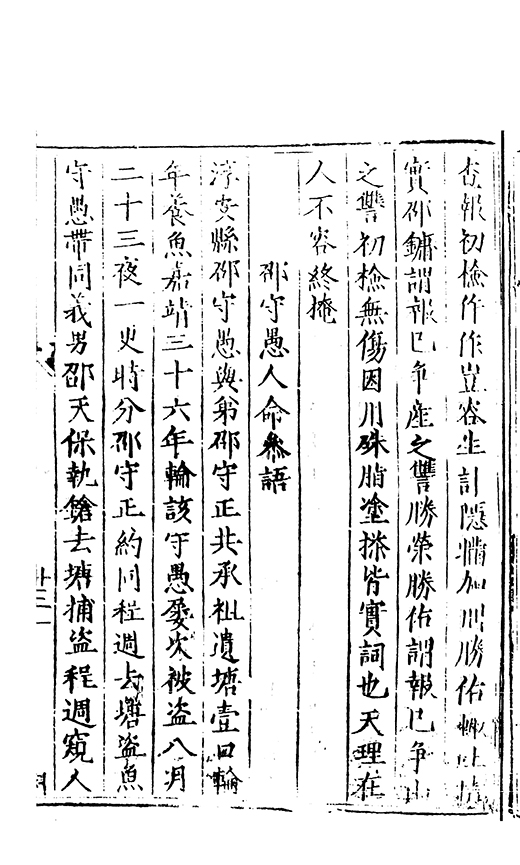 查報初檢仵作豈容生計隱情加問勝佑輒吐情
實邵鏞謂報已爭產之讐勝榮勝佑謂報已爭山
之讐初檢無傷因用硃脂塗搽皆實詞也天理在
人不容終掩
邵守愚人命參語
淳安縣邵守愚與弟邵守正共承祖遺塘壹口輪
年養魚嘉靖三十六年輪該守愚屢次被盜八月
二十三夜一更時分邵守正約同程週去塘盜魚
守愚帶同義男邵天保執鎗去塘捕盜程週窺人